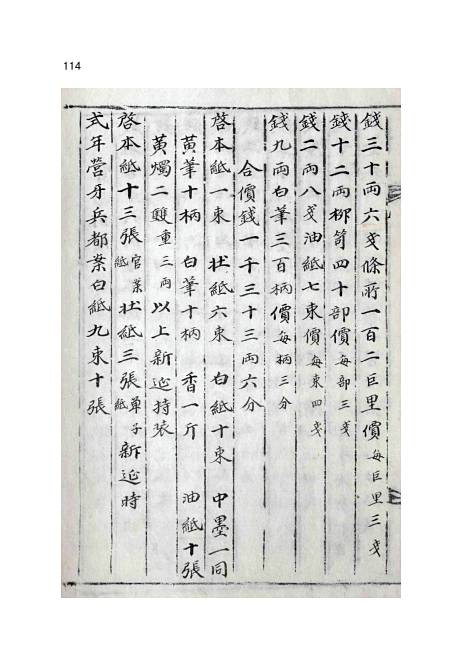 114
錢三十両六戔條所一百二巨里價每巨里三戔
錢十二両柳笥四十部價每部三戔
錢二両八戔油紙七束價每束四戔
錢九両白筆三百柄價每柄三分
合價錢一千三十三両六分
啓本紙一束 状紙六束 白紙十束 中墨一同
黃筆十柄 白筆十柄 香一斤 油紙十張
黃燭二雙重三両以上新延持去
啓本紙十三張官案紙状紙三張單子紙新延時
式年營牙兵都案白紙九束十張